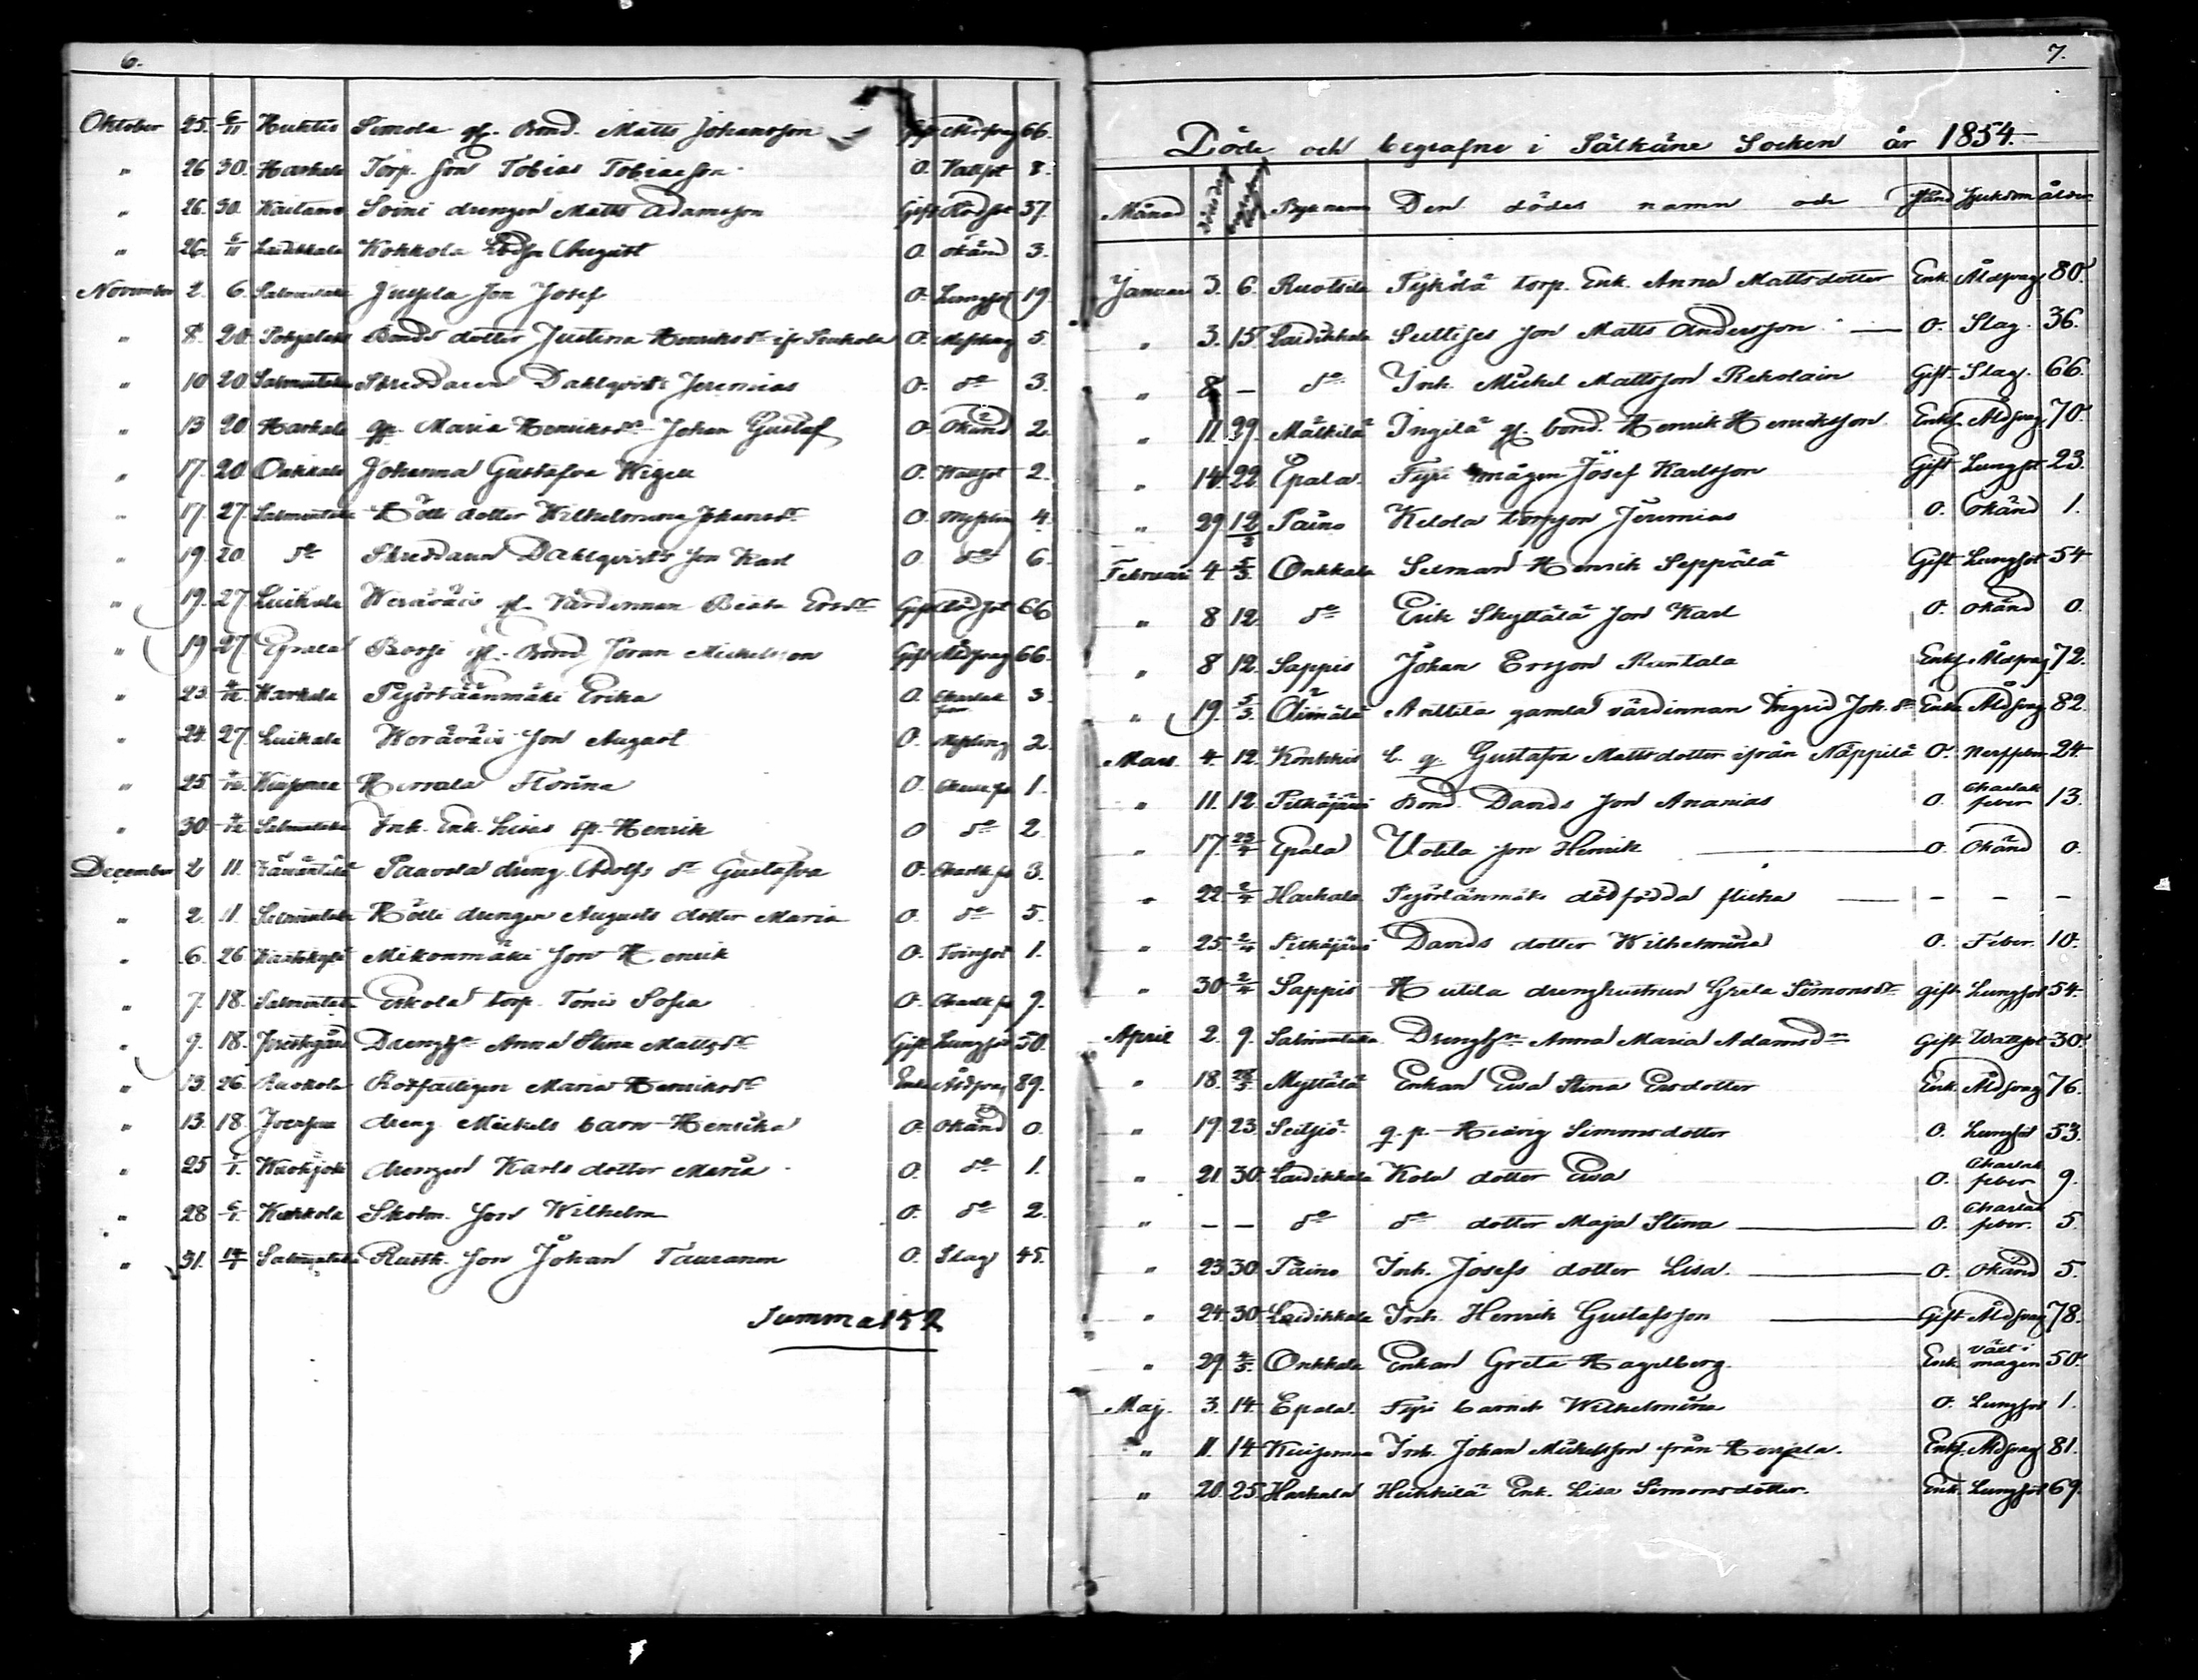 6.
Oktober 25. 6/11 Huktis Simola gl. Bond. Matts Johansson Gift Åldrag 66.
" 26 30. Harhala Torp. Son Tobias Tobiasson 0. Vattsot 8.
" 26. 30. Kaitamo Soini drengen Matts Adamsson Gift Rödsot 37.
" 26. 6/11 Laidikkala Kokkola August 0. Okänd 3.
November 2. 6. Salmentaka Jussila son Josef 0. Lungsot 19
" 8. 20. Pohjalaht Bonds dotter Justina Henriksdr ifr Penkola 0. 5.
" 10 20 Salmentaka Skreddaren Dahlqvists Jeremias 0. do 3.
" 13 20 Harhala qp. Maria Henriksdr Johan Gustaf 0. Okänd 2.
" 17. 20 Onkkala Johanna Gustafva Wigell 0. Wattsot 2.
" 17. 27. Salmentaka Kölli dotter Wilhelmina Johansdr 0. Messling 4.
" 19. 20 do Skreddaren Dahlqvists son Karl 0 do 6.
" 19. 27 Luikala Weräväis gl. Värdinnan Beata Ersdr Gift Rödsot 66
" 19 27 Epaala Borsi gl. Bond. Jöran Mickelsson Gift Åldrag 66.
" 23. 4/12 Harhala Pejörläänmäki Erika 0. Skarlak feber 3.
" 24. 27 Luikala Weräväis son August 0. Messling 2.
" 25. Kuisema Herrala Florina 0. 1.
" 30 Salmentaka Inh. Enk. Lisas sp. Henrik 0 do 2.
December 2 11. Paavola dreng. Adolfs dr Gustafva 0. 3.
" 2. 11. Salmentaka Kölli drengen Augusts dotter Maria 0. do 5.
" 6. 26 Mikonmäki son Henrik 0. 1.
" 7. 18. Salmentaka Eskola torp. Tonis Sofia 0. 9.
" 9. 18. Drenghn Anna Stina Mattsdr Gift Lungsot 50.
" 13. 26. Ruokola Rotfattigen Maria Henriksdr Enka Åldrag 89.
" 13. 18. dreng Mickels barn Henrika 0. Okänd 0.
" 25 drengen Karls dotter Maria 0. do 1.
" 28 6/1. Kukkola Skolm. son Wilhelm 0. do 2.
" 31. Salmentaka Rustk. son Johan Tauranen 0. Slag 45.
Summa 152
7.
Döde och begrafne i Sälkäne Socken år 1854.
Månad Byns namn Den dödes namn och stånd Sjukdom ålder
Januari 3. 6. Ruotsila Pyhälä torp. Enk. Anna Mattsdotter Enk. Åldrag 80.
" 3. 15. Laidikkala Sultises son Matts Andersson 0. Slag. 36.
" 8 - do Inh. Mickel Mattsson Rekolain Gift Slag. 66.
" 11. 29. Mälkilä Ingilä gl. bond. Henrik Henriksson Enkl. Åldrag 70.
" 14. 22. Epala. Fyri mågen Josef Karlsson Gift Lungsot 23.
" 29. 12/2 Päino Kelola torpson Jeremias 0. Okänd 1.
Februari 4 5/3. Onkkala Seman Henrik Seppälä Gift Lungsot 54
" 8 12. do Erik Skyttälä son Karl 0. Okänd 0.
" 8 12. Sappis Johan Ersson Rantala Enkl. Åldrag 72.
" 19. 5/3. Äimälä Anttila gamla värdinnan Ingrid Joh.dr Enka Åldrag 82.
Mars 4. 12. Konkkis l. q. Gustafva Mattsdotter ifrån Näppilä 0. Nerffeber 24.
" 11. 12. Pitkäjärvi Bond. Davids son Ananias 0. Skarlak feber 13.
" 17. 23/4 Epala Uotila son Henrik 0. Okänd 0.
" 22. 2/4 Harhala Pejörlänmäki dödfödda flicka - - -
" 25. 2/4 Pitkäjärvi Davids dotter Wilhelmina 0. Feber. 10.
" 30 2/4 Sappis Hutila drenghustrun Greta Simonsdr gift. Lungsot 54.
April 2. 9. Salmentaka Drenghn Anna Maria Adamsdr Gift Wattsot 30.
" 18. 28/5 Myttälä Enkan Ewa Stina Ersdotter Enk. Åldrag 76.
" 19. 23. Seitsiö q. p. Hedvig Simonsdotter 0. Lungsot 53.
" 21. 30. Laidikkala Kola dotter Ewa 0. Skarlak feber 9.
" - - do do dotter Maja Stina 0. Skarlak feber. 5.
" 23. 30 Päino Inh. Josefs dotter Lisa. 0. Okänd 5.
" 24. 30. Laidikkala Inh. Henrik Gustafsson Gift Åldrag 78.
" 29. 4/5. Onkkala Enkan Greta Hagelberg. Enk. värk i magen 50.
Maj. 3. 14. Epala. Fyri barnet Wilhelmina 0. Lungsot 1.
" 11. 14 Kuisema Inh. Johan Mickelsson från Herjala. Enkl. Åldrag 81.
" 20. 25. Harhala Heikkilä Enk. Lisa Simonsdotter. Enk. Lungsot 69.